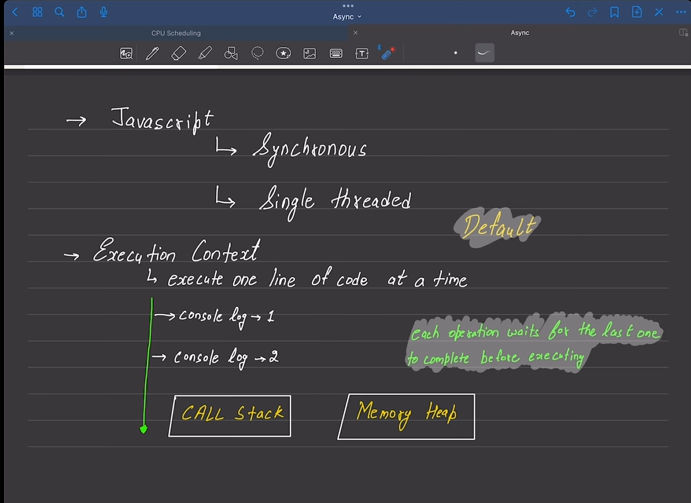 Async
CPU Scheduling
Async
→ Javascript
↳ Synchronous
↳ Single threaded
Default
→ Execution Context
↳ execute one line of code at a time
→ console log → 1
→ console log → 2
each operation waits for the last one
to complete before executing
CALL Stack
Memory Heap